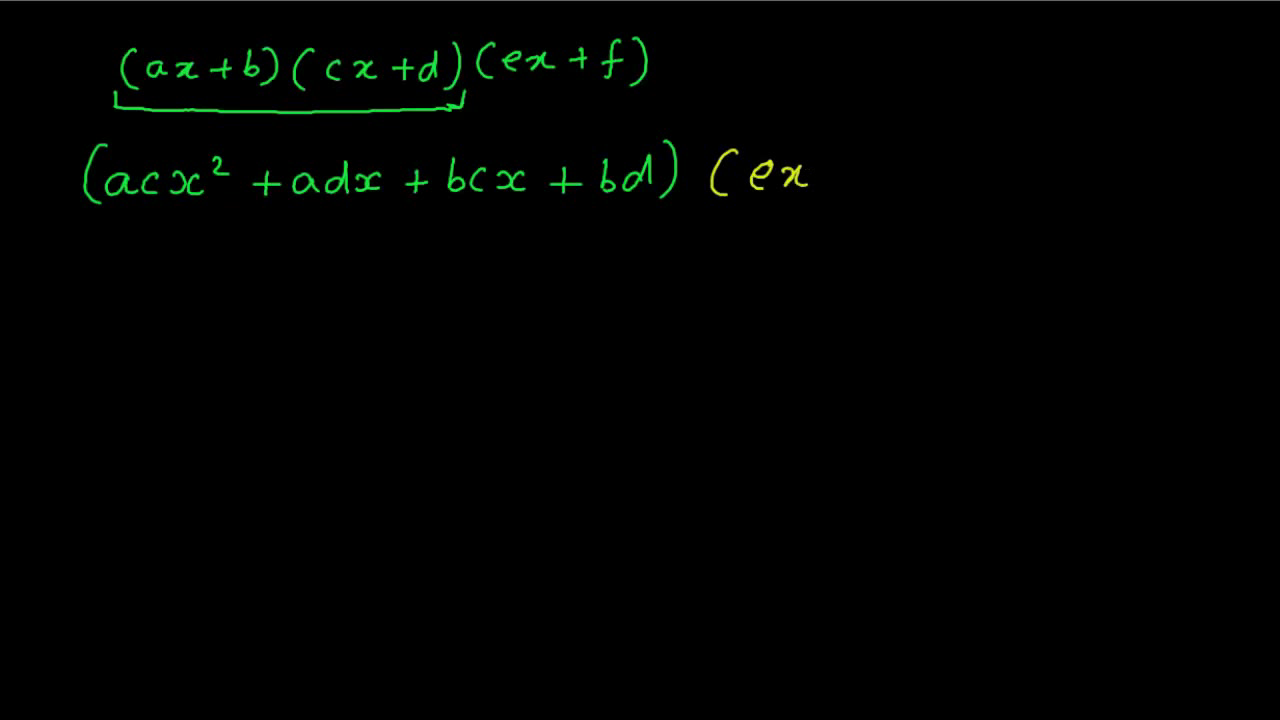 (ax+b)(cx+d)(ex+f)
(acx² + adx + bcx + bd) (ex